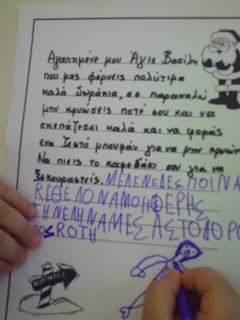 Αγαπημένε μου Άγιε Βασίλη
που μας φέρνεις πολύτιμα
καλά δωράκια, σε παρακαλώ
μην κρυώσεις ποτέ σου και να
σκεπάζεσαι καλά και να φοράς
ένα ζεστό μπουφάν για να μην κρυώνεις
Να πιεις το καφεδάκι σου για να
ξεκουραστείς. ΜΕΛΕΝΕ ΔΕΣΠΟΙΝΑ
ΘΕΛΟ ΝΑ ΜΟΥ ΦΕΡΗΣ
ΤΗ ΝΕΛΗ ΝΑ ΜΕΣ ΑΣΤΟ ΔΟΡΟ
NORTH POLE